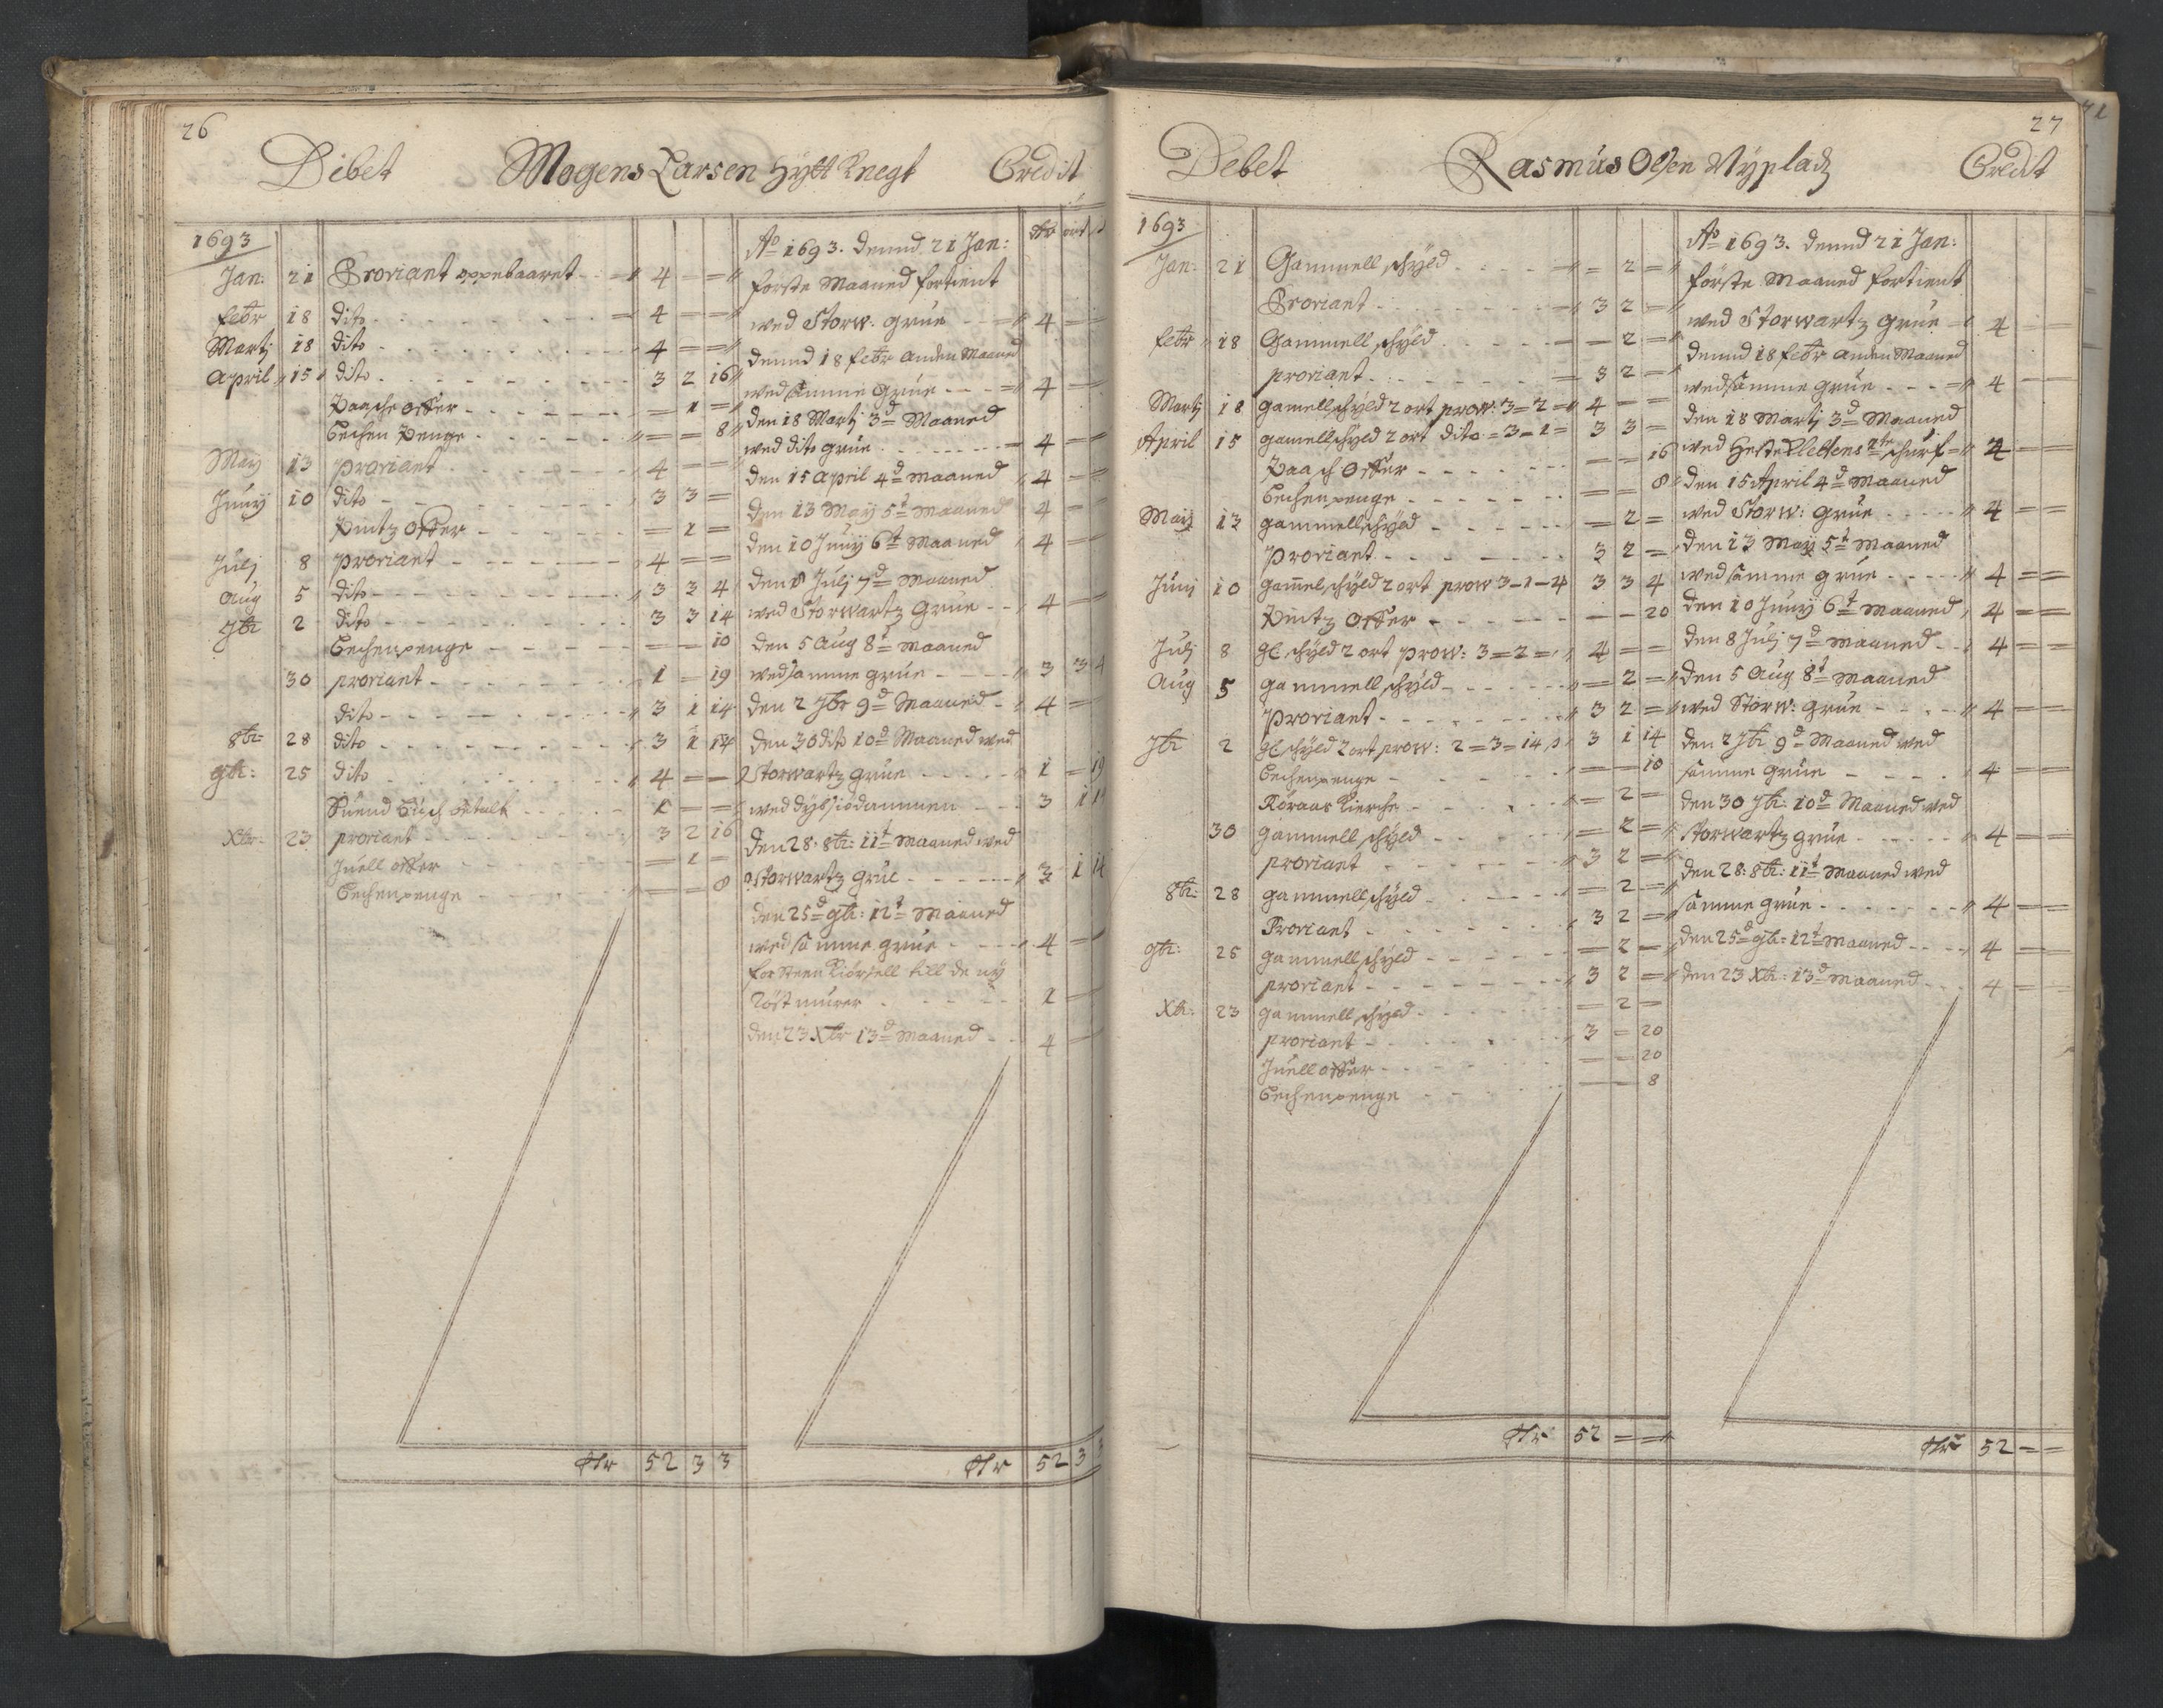 26
Debet Mogens Larsen Hytt Knegt Credit
1693
Jan: 21 Proviant oppebaaret - - = 4 - = 
febr 18 dito - - - 4 - = 
Martj 18 dito - - - 4 - = 
April 15 dito - - - 3 2 16
Paasche offer - - - = 1 =
Bechen Penge - - - = = 8
May 13 proviant - - - 4 - =
Juny 10 dito - - - 3 3 =
Pintz offer - - - = 1 =
Julj 8 proviant - - - 4 = =
Aug 5 dito - - - 3 3 4
7br 2 dito - - - 3 3 14
Bechenpenge - - - = = 10
30 proviant - - - 1 - 19
dito - - - 3 1 14
8br: 28 dito - - - 3 1 14
9br: 25 dito - - - 4 = =
Suend Buch betalt - - - 1 = =
Xbr: 23 proviant - - - 3 2 16
Juell offer - - - = 1 =
Bechenpenge - - - = = 8
dlr 52 3 3
dlr ort s
Ao 1693. dennd 21 Jan:
første Maaned fortient
wed Storw: grue - - = 4 - =
dennd 18 febr anden Maaned
wed samme grue - - - = 4 - =
den 18 Martj 3d Maaned
wed dito grue - - - 4 - =
den 15 april 4d maaned 4 - =
den 13 May 5t maaned 4 - =
den 10 Juny 6t Maaned 4 - =
den 8 Julj 7d maaned
wed Storwartz Grue - - 4 - =
den 5 Aug 8t maaned
wed samme grue - - - 3 3 4
den 2 7br 9d Maaned - 4 - =
den 30 dito 10d Maaned wed
Storwartz grue - - - 1 - 19
wed dybsiødammen - - - 3 1 14
den 28. 8br: 11t maaned wed
Storwartz grue - - - 3 1 14
den 25d 9br: 12t Maaned
wed samme grue - - - 4 - =
for steen Kiørsell till de ny
Røst murer - - - 1 - =
den 23 Xbr 13d Maaned - - 4 - =
dlr 52 3 3
27
Debet Rasmus Olsen Nyplads Credit
1693
Jan: 21 Gammell schyld - - - = 2 =
Proviant - - - 3 2 =
febr 18 Gammell schyld - - - - 2 =
proviant - - - 3 2 =
Martj 18 gamellschyld 2 ort prow: 3=2= 4 - =
April 15 gamellschyld 2 ort dito = 3-1= 3 3 =
Paasch offer - - - - - 16
Bechenpenge - - - = = 8
May 13 gammellschyld - - - = 2 =
Proviant - - - 3 2 =
Juny 10 gamelschyld 2 ort prow 3-1-4 3 3 4
Pintz offer - - - - - 20
Julj 8 gl schyld 2 ort prow: 3=2= 4 = =
Aug 5 gammell schyld - - - = 2 =
Proviant - - - 3 2 =
7br 2 gl schyld 2 ort prow: 2=3=14 s 3 1 14
Bechenpenge - - - = = 10
Røraas Kierche - - - = 2 =
30 gammell schyld - - - = 2 =
proviant - - - 3 2 =
8br: 28 gammell schyld - - - = 2 =
Proviant - - - 3 2 =
9br: 25 gammell schyld - - - = 2 =
proviant - - - 3 2 =
Xbr: 23 gammell schyld - - - = 2 =
proviant - - - 3 = 20
Juell offer - - - = = 20
Bechenpenge - - - - - 8
dlr 52 = =
Ao 1693. dennd 21 Jan:
første Maaned fortient
wed Storwartz grue - 4 - =
dennd 18 febr anden Maaned
wed samme grue - - - = 4 - =
den 18 Martj 3d Maaned
wed Hesteklettens schurf = 4 = =
den 15 April 4d Maaned
wed Storw: grue - - - 4 = =
den 13 May 5t Maaned
wed samme grue - - - 4 = =
den 10 Juny 6t Maaned 4 = =
den 8 Julj 7d Maaned - - 4 = =
den 5 Aug 8t Maaned
wed Storw: grue - - - 4 = =
den 2 7br 9d Maaned wed
samme grue - - - 4 = =
den 30 7br: 10d Maaned wed
Storwartz grue - - - 4 = =
den 28: 8br: 11t Maaned wed
samme grue - - - 4 = =
den 25d 9br: 12t Maaned - - 4 = =
den 23 Xbr: 13d Maaned - - 4 = =
dlr 52 - =